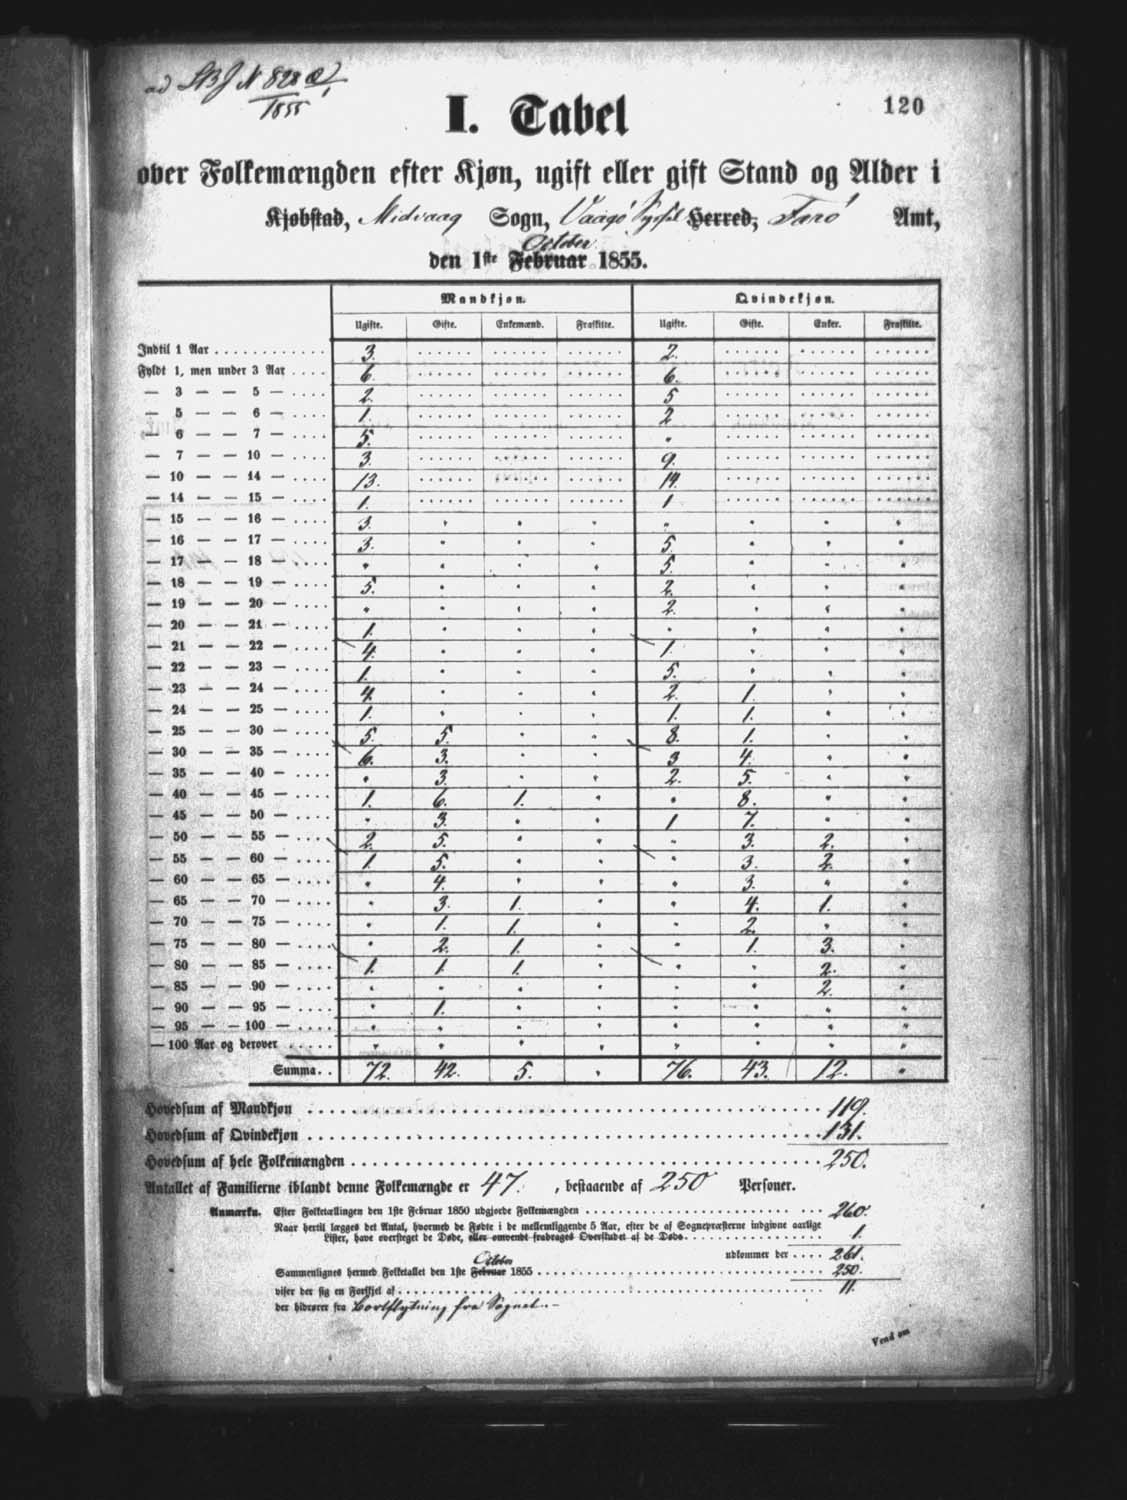 ad
120
I. Tabel
over Folkemængden efter Kjøn, ugift eller gift Stand og Alder i
Kjøbstad, Midvaag Sogn, Vaagø Sysſel Herred, Færø Amt,
October
den 1ste Februar 1855.
Mandkjøn. Qvindekjøn.
Ugifte. Gifte. Enkemænd. Fraskilte. Ugifte. Gifte. Enker. Fraskilte.
Indtil 1 Aar 3. 2.
Fyldt 1, men under 3 Aar 6. 6.
— 3 — — 5 — 2. 5
— 5 — — 6 — 1. 2
— 6 — — 7 — 5. "
— 7 — — 10 — 3. 9.
— 10 — — 14 — 13. 14.
— 14 — — 15 — 1. 1
— 15 — — 16 — 3. " " " " " " "
— 16 — — 17 — 3. " " " 5. " " "
— 17 — — 18 — " " " " 5. " " "
— 18 — — 19 — 5. " " " 2. " " "
— 19 — — 20 — " " " " 2. " " "
— 20 — — 21 — 1. " " " " " " "
— 21 — — 22 — 4. " " " 1. " " "
— 22 — — 23 — 1. " " " 5. " " "
— 23 — — 24 — 4. " " " 2. 1. " "
— 24 — — 25 — 1. " " " 1. 1. " "
— 25 — — 30 — 5. 5. " " 8. 1. " "
— 30 — — 35 — 6. 3. " " 3 4. " "
— 35 — — 40 — " 3. " " 2. 5. " "
— 40 — — 45 — 1. 6. 1. " " 8. " "
— 45 — — 50 — " 3. " " 1 7. " "
— 50 — — 55 — 2. 5. " " " 3. 2. "
— 55 — — 60 — 1. 5. " " " 3. 2. "
— 60 — — 65 — " 4. " " " 3. " "
— 65 — — 70 — " 3. 1. " " 4. 1. "
— 70 — — 75 — " 1. 1. " " 2. " "
— 75 — — 80 — " 2. 1. " " 1. 3. "
— 80 — — 85 — 1. 1. 1. " " " 2. "
— 85 — — 90 — " " " " " " 2. "
— 90 — — 95 — " 1. " " " " " "
— 95 — — 100 — " " " " " " " "
— 100 Aar og derover " " " " " " " "
Summa 72. 42. 5. " 76. 43. 12. "
Hovedsum af Mandkjøn 119.
Hovedsum af Qvindekjøn 131.
Hovedsum af hele Folkemængden 250.
Antallet af Familierne iblandt denne Folkemængde er 47. , bestaaende af 250 Personer.
Anmærkn. Efter Folketællingen den 1ste Februar 1850 udgjorde Folkemængden 260.
Naar hertil lægges det Antal, hvormed de Fødte i de mellemliggende 5 Aar, efter de af Sognepræsterne indgivne aarlige
Lister, have oversteget de Døde, eller omvendt fradrages Overskudet af de Døde 1.
udkommer der 261.
October
Sammenlignes hermed Folketallet den 1ste Februar 1855 250.
viser der sig en Forskjel af 11.
der hidrører fra Bortflytning fra Sognet.
Vend om